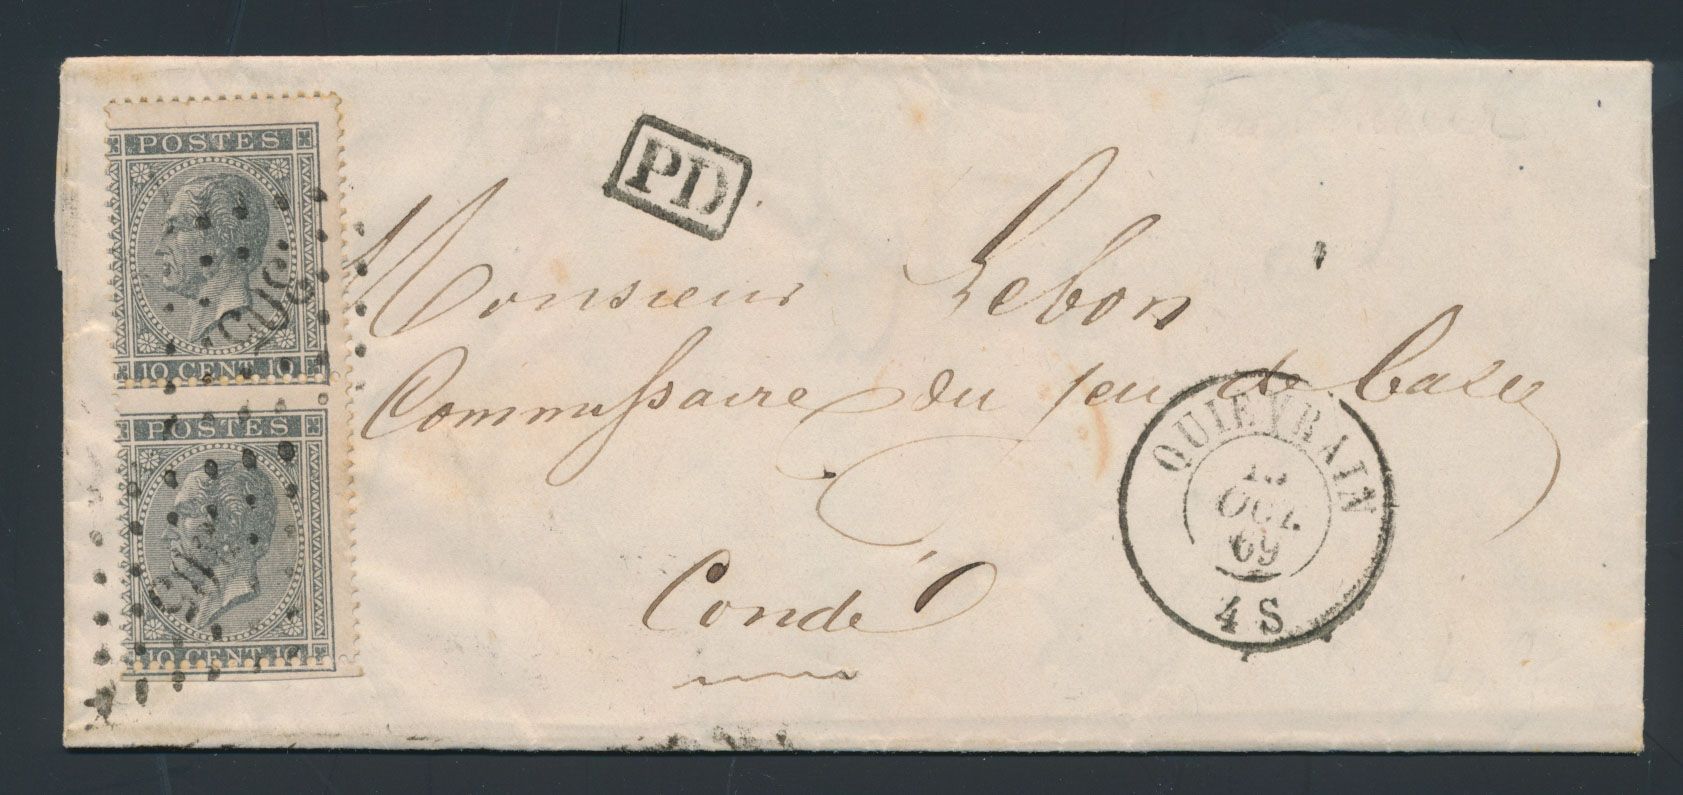 POSTES
10 CENT 10
POSTES
10 CENT 10
PD
Monsieur Lebon
Commissaire du jeu de
Condé
QUIEVRAIN
OCT.
69
4 S